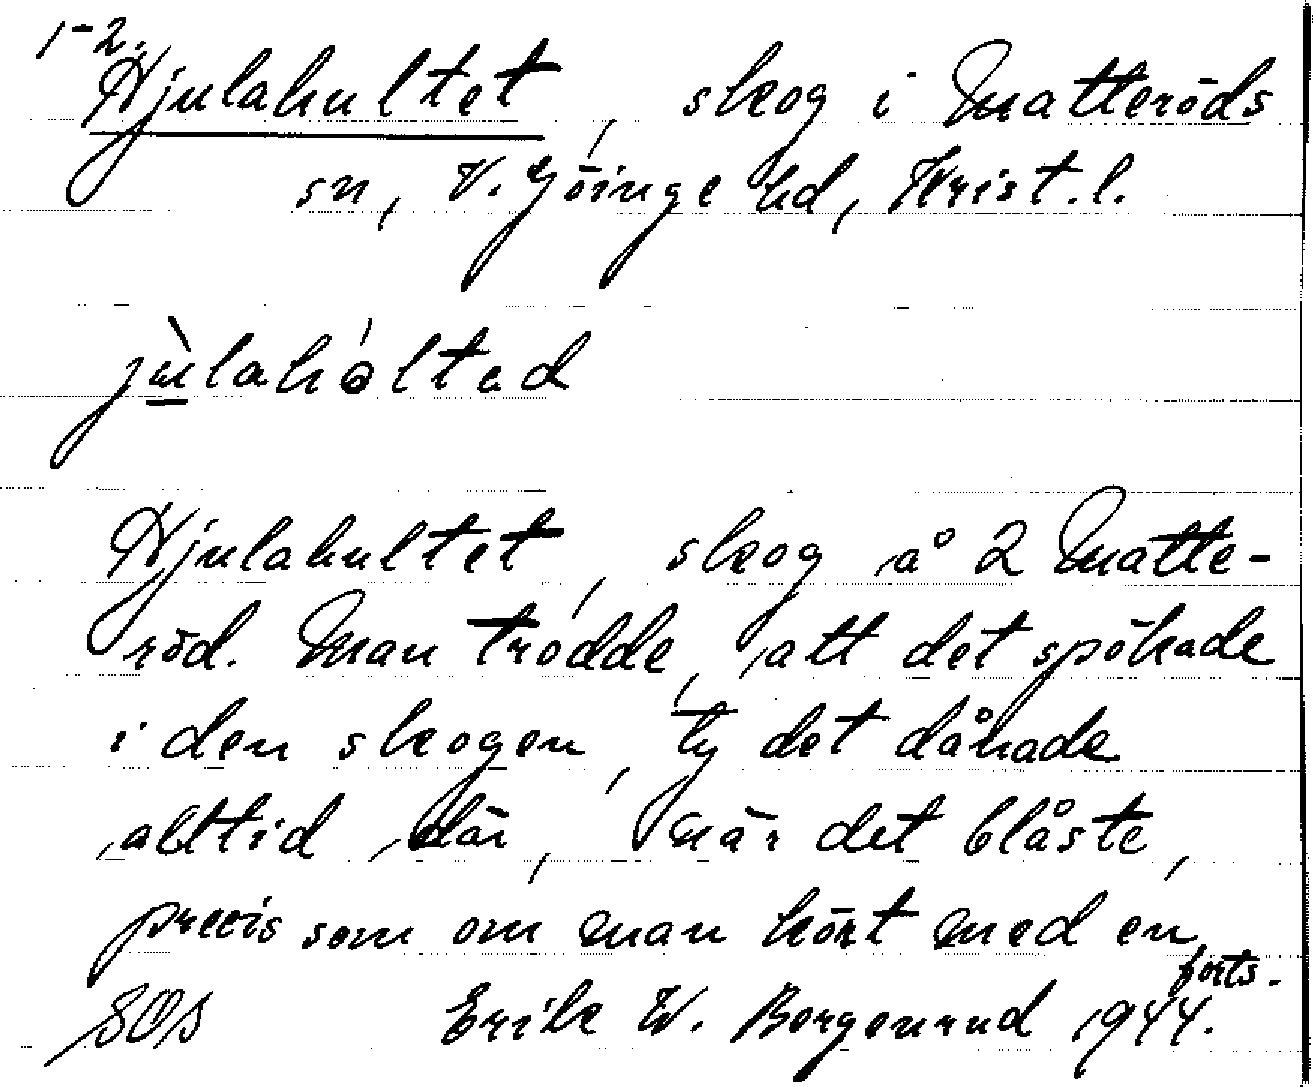 1-2.
Hjulahultet, skog i Matteröds
sn, V. Göinge hd, Krist. l.
jùlahúltad
Hjulahultet, skog å 2 Matte-
röd. Man trodde, att det spökade
i den skogen, ty det dånade
alltid där, när det blåste,
precis som om man kört med en
forts.
SOS Erik W. Borgenrud 1944.